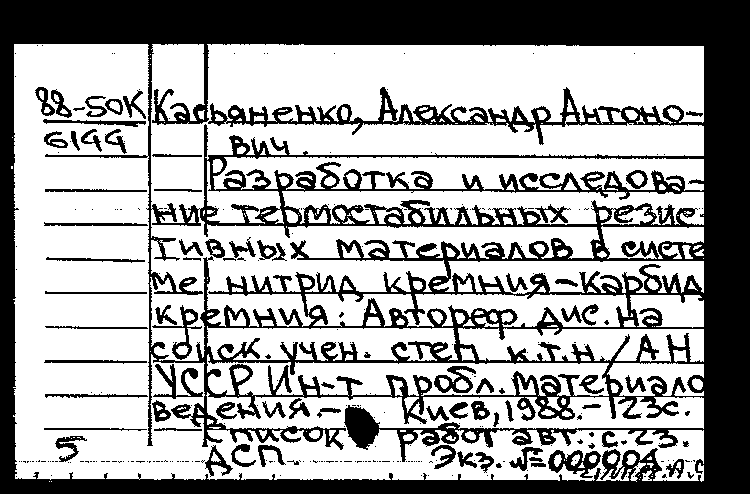 88-50К Касьяненко, Александр Антоно-
6144 вич.
Разработка и исследова-
ние термостабильных резис-
тивных материалов в систе
ме нитрид кремния-карбид
кремния: Автореф. дис. на
соиск. учен. степ. к.т.н. / АН
УССР, Ин-т пробл. материало
ведения.- Киев, 1988.- 23с.
Список работ авт.: с. 23.
5 ДСП. Экз. №=000004